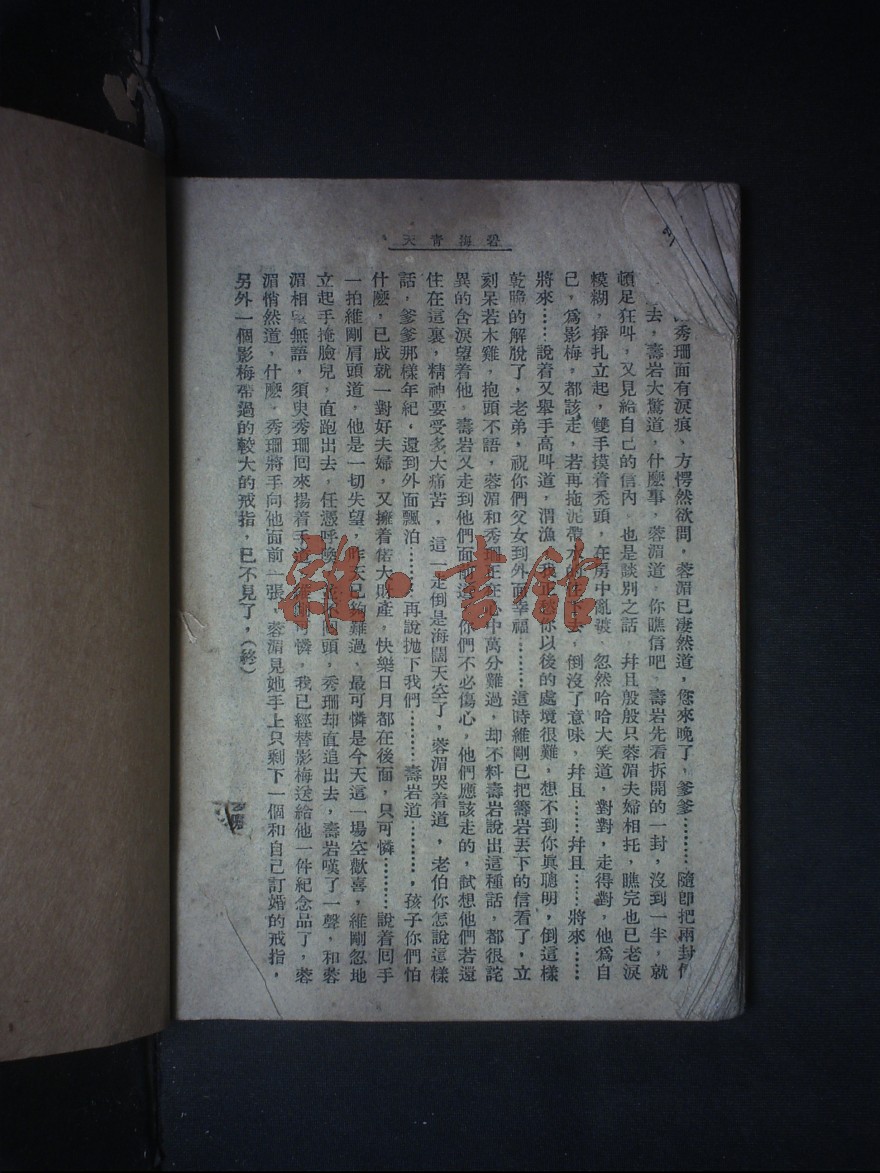 碧海青天
秀珊面有淚痕、方愕然欲問，蓉湄已凄然道，您來晚了，爹爹………隨卽把兩封信
去，壽岩大驚道，什麼事，蓉湄道，你瞧信吧，壽岩先看拆開的一封，沒到一半，就
頓足狂叫，又見給自己的信內，也是談別之話，幷且般般只蓉湄夫婦相托，瞧完也已老淚
糢糊，掙扎立起，雙手摸着禿頭，在房中亂踱，忽然哈哈大笑道，對對，走得對，他爲自
己，爲影梅，都該走，若再拖泥帶水，倒沒了意味，幷且……幷且……將來……
將來……說着又舉手高叫道，渭漁，你以後的處境很難，想不到你眞聰明，倒這樣
乾脆的解脫了，老弟，祝你們父女到外面幸福………這時維剛已把籌岩丟下的信看了，立
刻呆若木雞，抱頭不語，蓉湄和秀珊正在心中萬分難過，却不料壽岩說出這種話，都很詫
異的含淚望着他，壽岩又走到他們面前道，你們不必傷心，他們應該走的，試想他們若還
住在這裏，精神要受多大痛苦，這一走倒是海闊天空了，蓉湄哭着道，老伯你怎說這樣
話，爹爹那樣年紀，還到外面飄泊………再說拋下我們………壽岩道………，孩子你們怕
什麼，已成就一對好夫婦，又擁着偌大財產，快樂日月都在後面，只可憐………說着回手
一拍維剛肩頭道，他是一切失望，昨天已夠難過，最可憐是今天這一場空歡喜，維剛忽地
立起手掩臉兒，直跑出去，任憑呼喚，不回頭，秀珊却直追出去，壽岩嘆了一聲，和蓉
湄相視無語，須臾秀珊回來揚着手道，可憐，我已經替影梅送給他一件紀念品了，蓉
湄悄然道，什麼，秀珊將手向他面前一張，蓉湄見她手上只剩下一個和自己訂婚的戒指，
另外一個影梅帶過的較大的戒指，已不見了，（終）
雜·書館